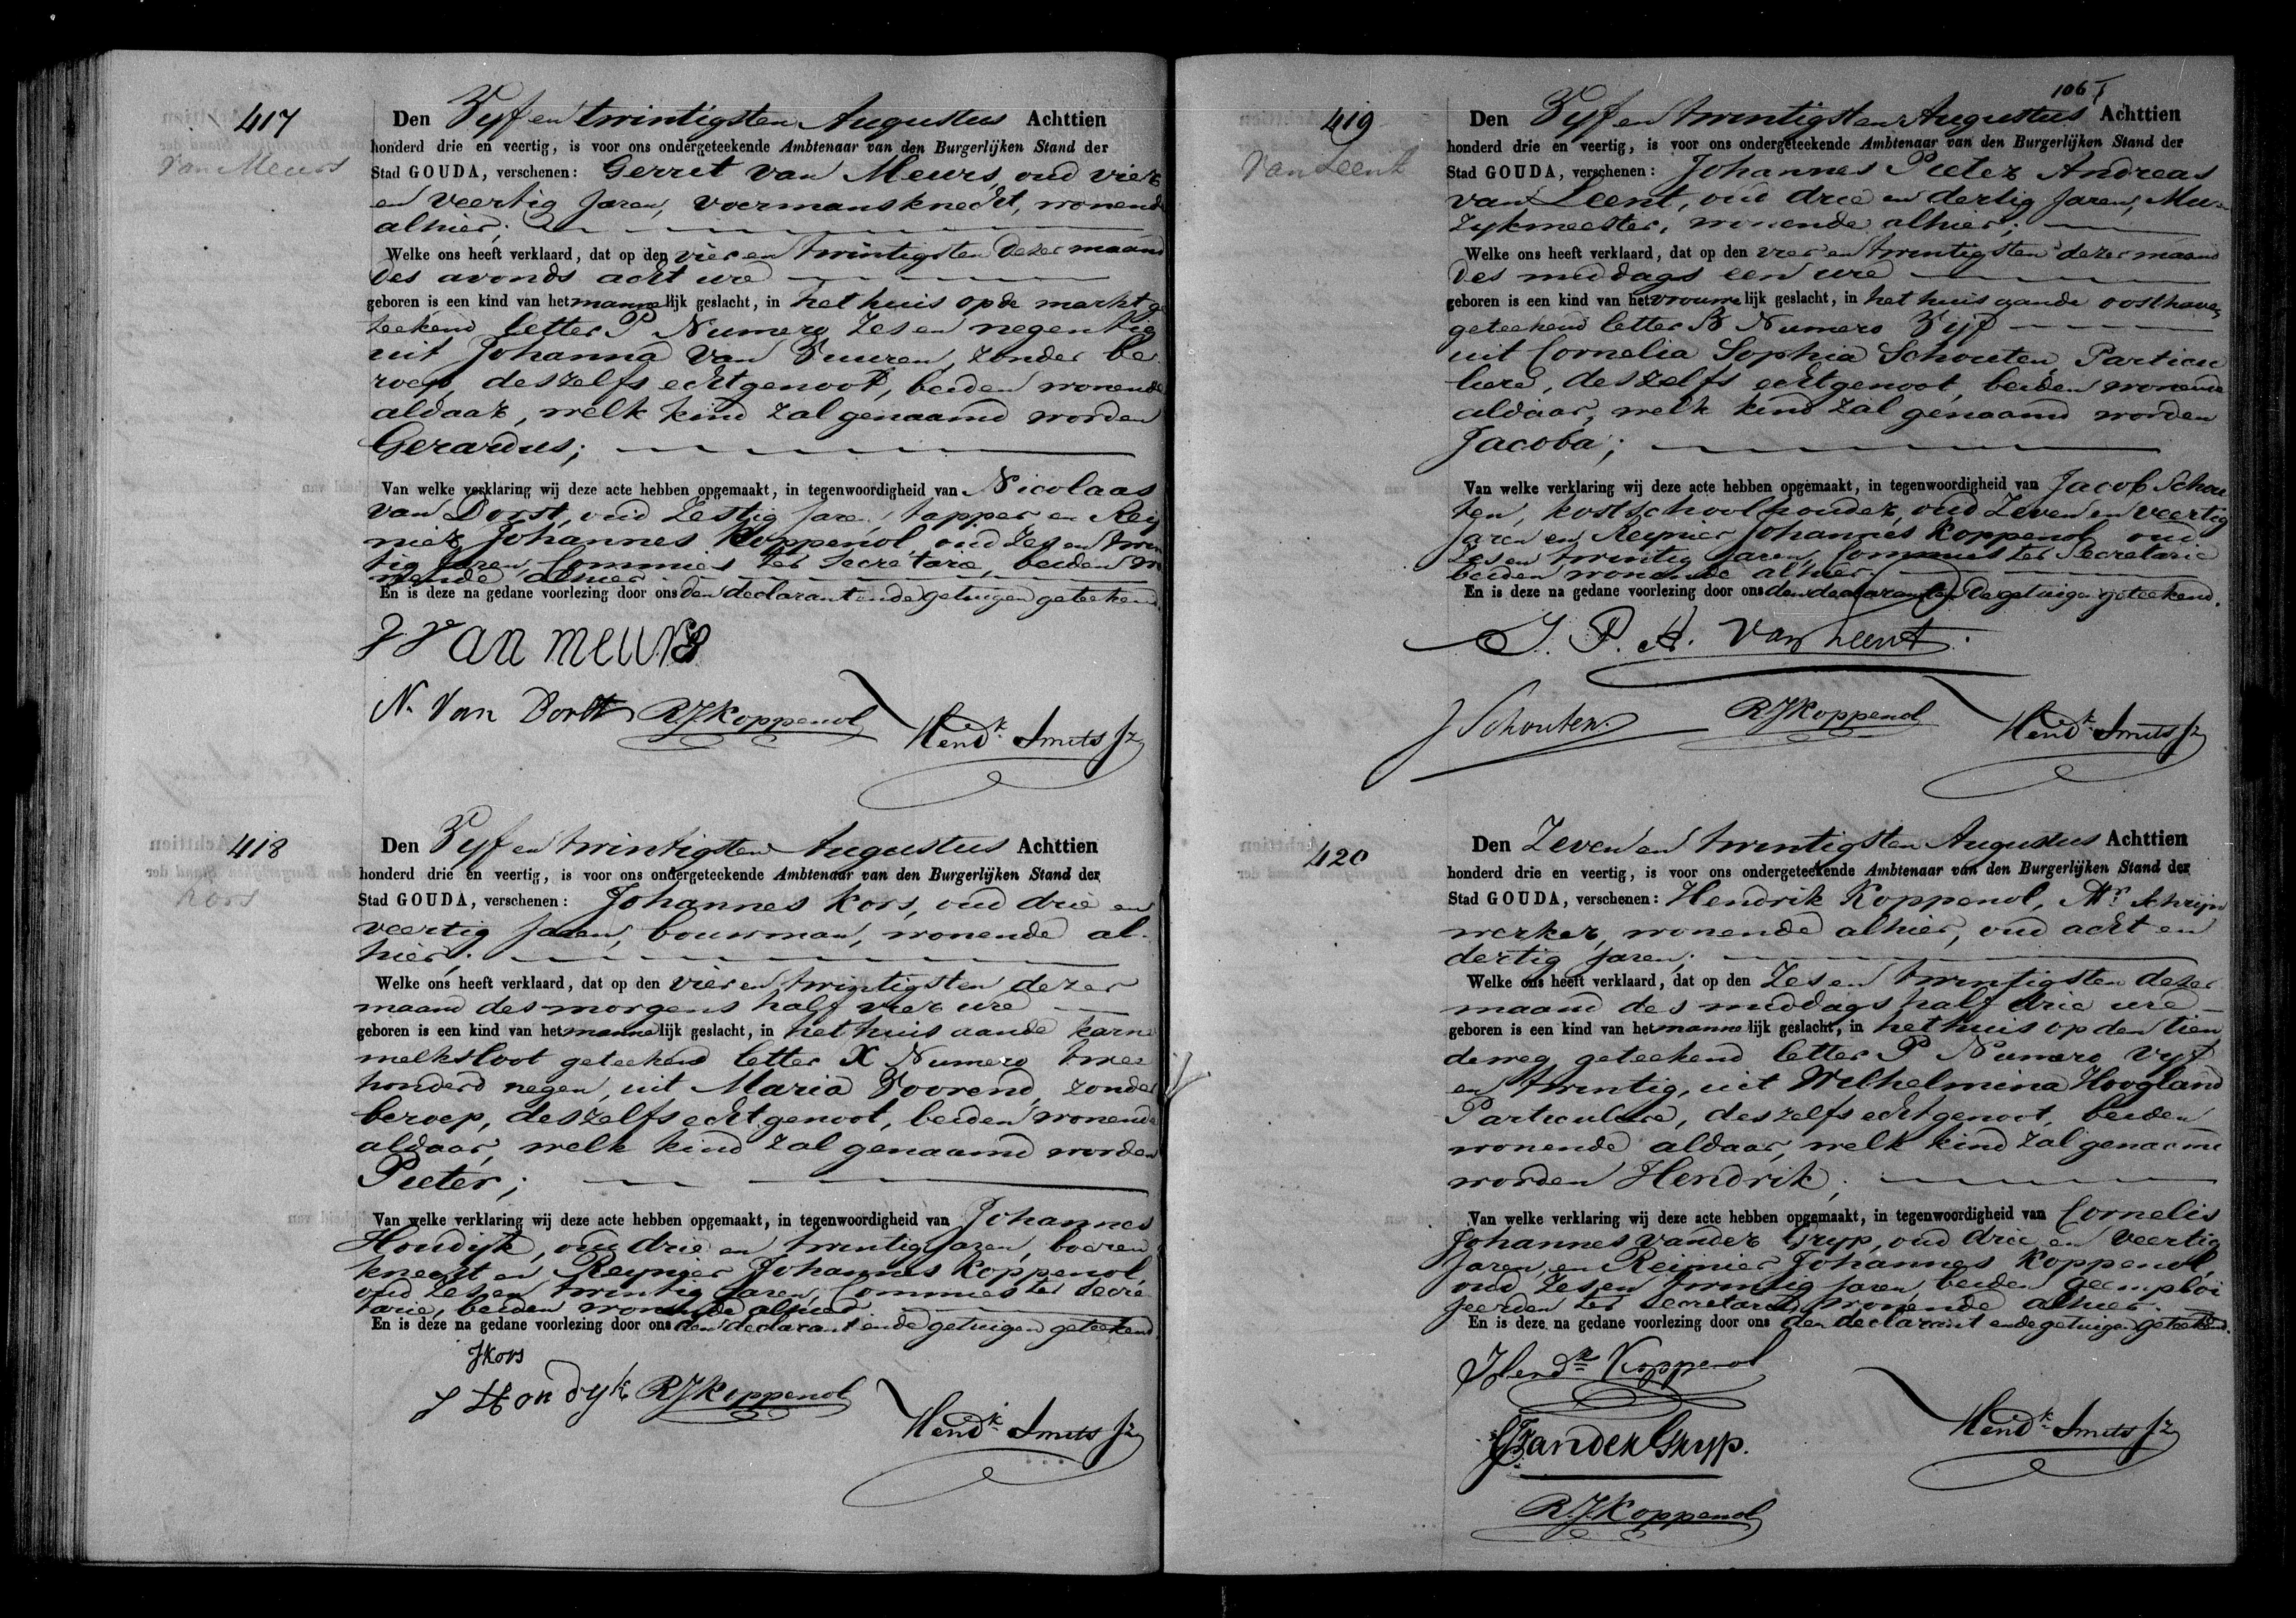 417
van Meurs
Den Vyf en twintigsten Augustus Achttien
honderd drie en veertig, is voor ons ondergeteekende Ambtenaar van den Burgerlijken Stand der
Stad GOUDA, verschenen: Gerret van Meurs, oud vier
en veertig Jaren, voermansknecht, wonende
alhier;
Welke ons heeft verklaard, dat op den vier en twintigsten dezer maand
des avonds acht ure
geboren is een kind van het mannelijk geslacht, in het huis op de markt ge
teekend letter P Numero Zes en negentig
uit Johanna van Vuuren, zonder be
roep, deszelfs echtgenoot, beiden wonende
aldaar, welk kind zal genaamd worden
Gerardus;
Van welke verklaring wij deze acte hebben opgemaakt, in tegenwoordigheid van Nicolaas
van Dorst, oud Zestig Jaren, tapper en Rey
nier Johannes Koppenol, oud Zes en twin
tig Jaren, Commies ter Secretarie, beiden wo
nende alhier.
En is deze na gedane voorlezing door ons den declarant en de getuigen geteekend.
van meurs
N. Van Dorst RJKoppenol
Hendk Smits Jz
418
Kors
Den Vyf en twintigsten Augustus Achttien
honderd drie en veertig, is voor ons ondergeteekende Ambtenaar van den Burgerlijken Stand der
Stad GOUDA, verschenen: Johannes Kors, oud drie en
veertig Jaren, bouwman, wonende al-
hier;
Welke ons heeft verklaard, dat op den vier en twintigsten dezer
maand des morgens half vier ure
geboren is een kind van het mannelijk geslacht, in het huis aan de karne
melksloot geteekend letter X Numero twee
honderd negen, uit Maria Voorend, zonder
beroep, deszelfs echtgenoot, beiden wonende
aldaar, welk kind zal genaamd worden
Pieter;
Van welke verklaring wij deze acte hebben opgemaakt, in tegenwoordigheid van Johannes
Hondijk, oud drie en twintig Jaren, boeren
knecht en Reynier Johannes Koppenol,
oud Zes en twintig Jaren, Commies ter Secre
tarie, beiden wonende alhier.
En is deze na gedane voorlezing door ons den declarant en de getuigen geteekend.
JKors
J Hondyk RJKoppenol
Hendk Smits Jz
106
419
Van Leent
Den Vyf en twintigsten Augustus Achttien
honderd drie en veertig, is voor ons ondergeteekende Ambtenaar van den Burgerlijken Stand der
Stad GOUDA, verschenen: Johannes Pieter Andreas
van Leent, oud drie en dertig Jaren, Mu-
zykmeester, wonende alhier;
Welke ons heeft verklaard, dat op den vier en twintigsten dezer maand
des middags een ure
geboren is een kind van het vrouwelijk geslacht, in het huis aande oosthaven
geteekend letter B Numero Vyf
uit Cornelia Sophia Schouten, Particu
liere, deszelfs echtgenoot, beiden wonende
aldaar, welk kind zal genaamd worden
Jacoba;
Van welke verklaring wij deze acte hebben opgemaakt, in tegenwoordigheid van Jacob Schou
ten, kostschoolhouder, oud Zeven en veertig
Jaren en Reynier Johannes Koppenol oud
Zes en twintig Jaren, Commies ter Secretarie
beiden wonende alhier.
En is deze na gedane voorlezing door ons den declarant en de getuigen geteekend.
J. P. A. van Leent.
J Schouten. RJKoppenol
Hendk Smits Jz
420
Den Zeven en twintigsten Augustus Achttien
honderd drie en veertig, is voor ons ondergeteekende Ambtenaar van den Burgerlijken Stand der
Stad GOUDA, verschenen: Hendrik Koppenol, Mr Schrijn
werker, wonende alhier, oud acht en
dertig Jaren;
Welke ons heeft verklaard, dat op den Zes en twintigsten dezer
maand des middags half drie ure
geboren is een kind van het mannelijk geslacht, in het huis op den tien
deweg geteekend letter P Numero Vyf
en twintig, uit Wilhelmina Hoogland
Particuliere, deszelfs echtgenoot, beiden
wonende aldaar, welk kind zal genaamd
worden Hendrik;
Van welke verklaring wij deze acte hebben opgemaakt, in tegenwoordigheid van Cornelis
Johannes vander Gryp, oud drie en veertig
Jaren, en Reinier Johannes Koppenol,
oud Zes en twintig Jaren, beiden Geemploi
jeerden ter Secretarie, wonende alhier.
En is deze na gedane voorlezing door ons den declarant en de getuigen geteekend.
Hendk Koppenol
vander Gryp.
Hendk Smits Jz
R.J.Koppenol